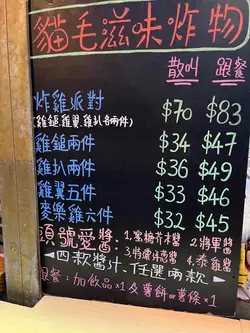 貓毛滋味炸物
散叫 跟餐
炸雞派對 $70 $83
(雞鎚.雞翼.雞扒各兩件)
雞鎚兩件 $34 $47
雞扒兩件 $36 $49
雞翼五件 $33 $46
麥樂雞六件 $32 $45
頭號愛醬 1.蜜糖芥末醬 2.將軍醬
3.特濃燒烤醬 4.泰雞醬
四款醬汁.任選兩款
跟餐:加飲品×1 及薯餅or薯條×1